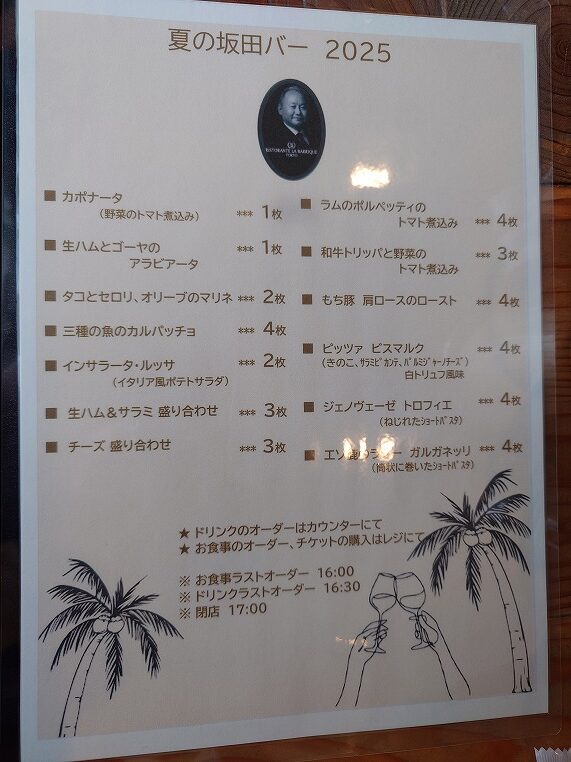 夏の坂田バー 2025
RISTORANTE LA BARRIQUE
TOKYO
■ カポナータ
(野菜のトマト煮込み) *** 1枚
■ 生ハムとゴーヤの
アラビアータ *** 1枚
■ タコとセロリ、オリーブのマリネ *** 2枚
■ 三種の魚のカルパッチョ *** 4枚
■ インサラータ・ルッサ *** 2枚
(イタリア風ポテトサラダ)
■ 生ハム＆サラミ 盛り合わせ *** 3枚
■ チーズ 盛り合わせ *** 3枚
■ ラムのポルペッティの
トマト煮込み *** 4枚
■ 和牛トリッパと野菜の
トマト煮込み *** 3枚
■ もち豚 肩ロースのロースト *** 4枚
■ ピッツァ ビスマルク *** 4枚
(きのこ、ｻﾗﾐﾋﾟｶﾝﾃ、ﾊﾟﾙﾐｼﾞｬｰﾉﾁｰｽﾞ)
白トリュフ風味
■ ジェノヴェーゼ トロフィエ *** 4枚
(ねじれたｼｮｰﾄﾊﾟｽﾀ)
■ エゾ ガルガネッリ *** 4枚
(筒状に巻いたｼｮｰﾄﾊﾟｽﾀ)
★ ドリンクのオーダーはカウンターにて
★ お食事のオーダー、チケットの購入はレジにて
※ お食事ラストオーダー 16:00
※ ドリンクラストオーダー 16:30
※ 閉店 17:00